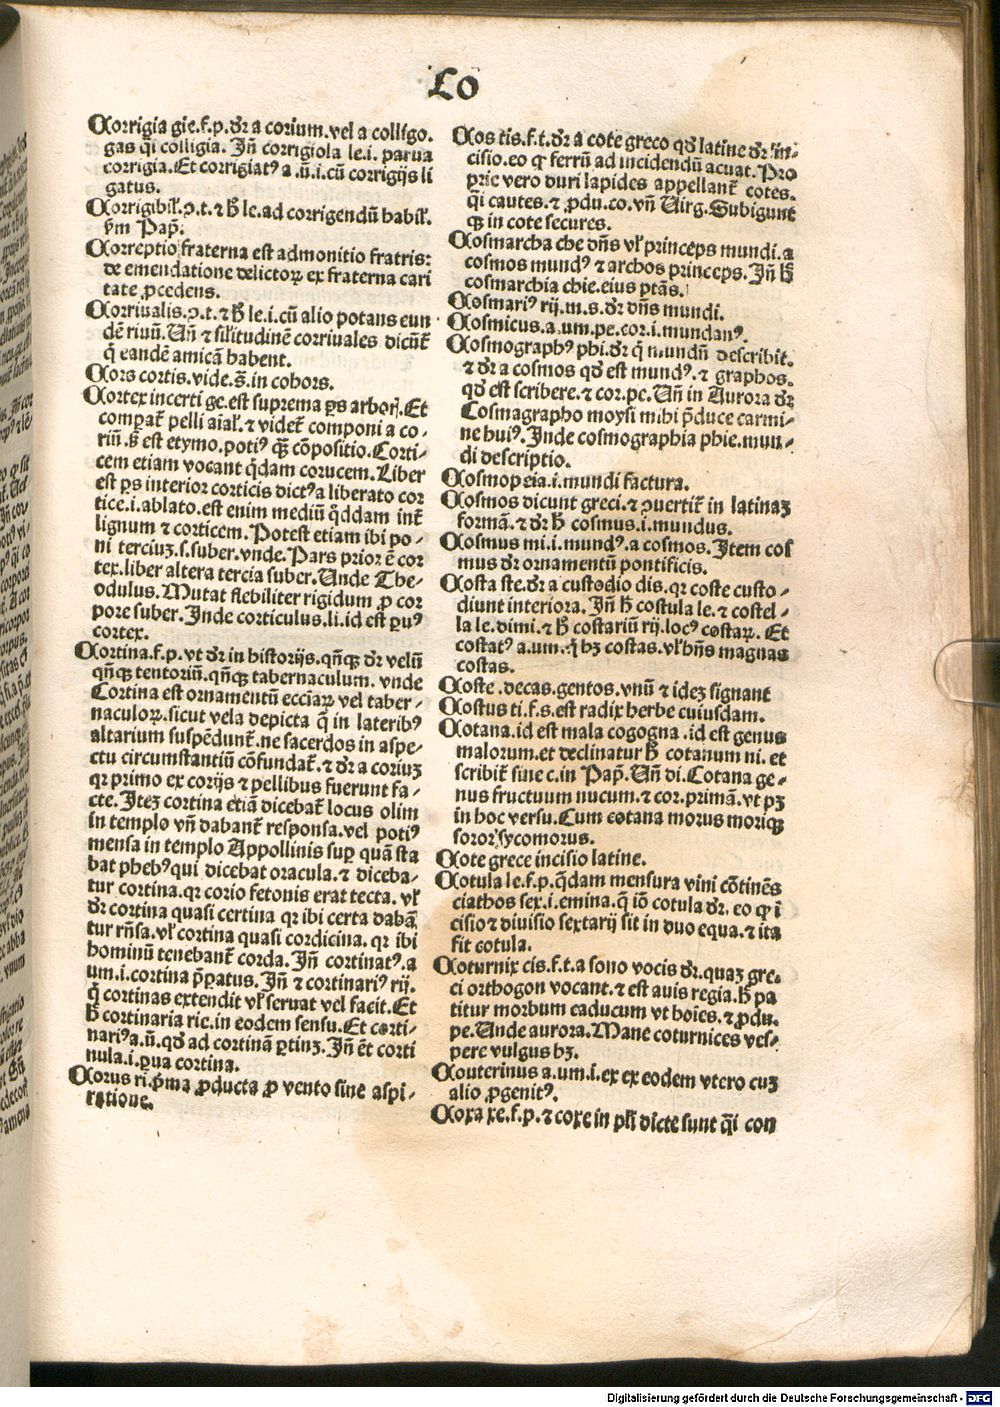 Co
Corrigia gie.f.p.dr̄ a corium.vel a colligo.
gas q̄i colligia. Jn̄ corrigiola le.i. parua
corrigia.Et corrigiatꝰ a .ū.i.cū corrigijs li
gatus.
Corrigibil̄.ꝯ.t.⁊ h̄ le.ad corrigendū habil̄.
ẜm Pap̄.
Correptio fraterna est admonitio fratris:
de emendatione delictoꝝ ex fraterna cari
tate ꝓcedens.
Corriualis.ꝯ.t.⁊ h̄ le.i.cū alio potans eun
dē riuū.Vn̄ ⁊ sil̄itudinē corriuales dicūt̄
q̄ eandē amicā habent.
Cors cortis.vide.s̄.in cohors.
Cortex incerti ge.est suprema ꝑs arboꝝ.Et
compat̄ pelli aial̄.⁊ videt̄ componi a co-
riū.ẜ est etymo.potiꝰ qꝫ cōpositio.Corti-
cem etiam vocant q̄dam corucem.Liber
est ꝑs interior corticis dictꝰ a liberato cor
tice.i.ablato.est enim mediū q̄ddam int̄
lignum ⁊ corticem.Potest etiam ibi po-
ni terciuꝫ.s.suber.vnde.Pars prior ē cor
tex.liber altera tercia suber.Unde The-
odulus.Mutat flebiliter rigidum ꝓ cor
pore suber.Jnde corticulus.li.id est ꝑuꝰ
cortex.
Cortina.f.p.vt dr̄ in historijs.qn̄qꝫ dr̄ velū
qn̄qꝫ tentoriū.qn̄qꝫ tabernaculum. vnde
Cortina est ornamentū ecciaꝝ vel taber-
naculoꝝ.sicut vela depicta q̄ in lateribꝰ
altarium suspēdunt̄.ne sacerdos in aspe-
ctu circumstantiū cōfundat̄.⁊ dr̄ a coriuꝫ
qꝛ primo ex corijs ⁊ pellibus fuerunt fa-
cte.Jteꝫ cortina etiā dicebat̄ locus olim
in templo vn̄ dabant̄ responsa.vel potiꝰ
mensa in templo Appollinis suꝑ quā sta
bat phebꝰqui dicebat oracula.⁊ diceba-
tur cortina.qꝛ corio fetonis erat tecta. vl̄
dr̄ cortina quasi certina qꝛ ibi certa dabā
tur rn̄sa.vl̄ cortina quasi cordicina. qꝛ ibi
hominū tenebant̄ corda. Jn̄ cortinatꝰ.a
um.i.cortina p̄ꝑatus. Jn̄ ⁊ cortinariꝰ rij.
q̄ cortinas extendit vl̄ seruat vel facit.Et
h̄ cortinaria rie.in eodem sensu.Et corti-
nariꝰa.ū.qd̄ ad cortinā ꝑtinꝫ. Jn̄ ēt corti
nula.i.ꝑua cortina.
Corus ri.p̄ma ꝓducta ꝓ vento sine aspi-
ratione.
Cos tis.f.t.dr̄ a cote greco qd̄ latine dr̄ in-
cisio.eo ꝙ ferrū ad incidendū acuat.Pro
prie vero duri lapides appellant̄ cotes.
q̄i cautes.⁊ ꝓdu.co.vn̄ Virg.Subigunt
qꝫ in cote secures.
Cosmarcha che dn̄s vl̄ princeps mundi.a
cosmos mundꝰ ⁊ archos princeps. Jn̄ h̄
cosmarchia chie.eius ptās.
Cosmariꝰ rij.m.s.dr̄ dn̄s mundi.
Cosmicus.a.um.pe.cor.i.mundanꝰ.
Cosmographꝰ phi.dr̄ q̄ mundū describit.
⁊ dr̄ a cosmos qd̄ est mundꝰ.⁊ graphos.
qd̄ est scribere.⁊ cor.pe.Vn̄ in Aurora dr̄
Cosmagrapho moysi mihi p̄duce carmi-
ne huiꝰ.Jnde cosmographia phie.mun-
di descriptio.
Cosmopeia.i.mundi factura.
Cosmos dicunt greci.⁊ ꝯuertit̄ in latinaꝫ
formā.⁊ dr̄ h̄ cosmus.i.mundus.
Cosmus mi.i.mundꝰ.a cosmos.Jtem cos
mus dr̄ ornamentū pontificis.
Costa ste.dr̄ a custodio dis.qꝛ coste custo-
diunt interiora. Jn̄ h̄ costula le.⁊ costel-
la le.dimi.⁊ h̄ costariū rij.locꝰ costaꝝ. Et
costatꝰ a.um.q̄ hꝫ costas.vl̄ bn̄s magnas
costas.
Coste .decas.gentos.vnū ⁊ ideꝫ signant
Costus ti.f.s.est radix herbe cuiusdam.
Cotana.id est mala cogogna .id est genus
malorum.et declinatur h̄ cotanum ni. et
scribit̄ sine c.in Pap̄.Vn̄ di.Cotana ge-
nus fructuum nucum.⁊ cor.primā.vt pꝫ
in hoc versu.Cum cotana morus moriqꝫ
soror sycomorus.
Cote grece incisio latine.
Cotula le.f.p.q̄dam mensura vini cōtinēs
ciathos sex.i.emina.q̄ iō cotula dr̄. eo ꝙ ī
cisio ⁊ diuisio sextarij sit in duo equa.⁊ ita
fit cotula.
Coturnix cis.f.t.a sono vocis dr̄.quaꝫ gre-
ci orthogon vocant.⁊ est auis regia.h̄ pa
titur morbum caducum vt hoies.⁊ ꝓdu.
pe.Unde aurora.Mane coturnices ves-
pere vulgus hꝫ.
Couterinus a.um.i.ex ex eodem vtero cuꝫ
alio ꝓgenitꝰ.
Coxa xe.f.p.⁊ coxe in pl̄i dicte sunt q̄i con
Digitalisierung gefördert durch die Deutsche Forschungsgemeinschaft - DFG